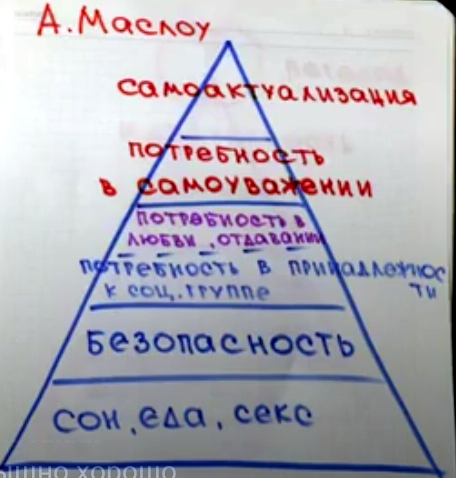 А. Маслоу
самоактуализация
потребность
в самоуважении
потребность в
любви, отдавании
потребность в принадлежнос
ти
к соц. группе
Безопасность
сон, еда, секс
хорошо